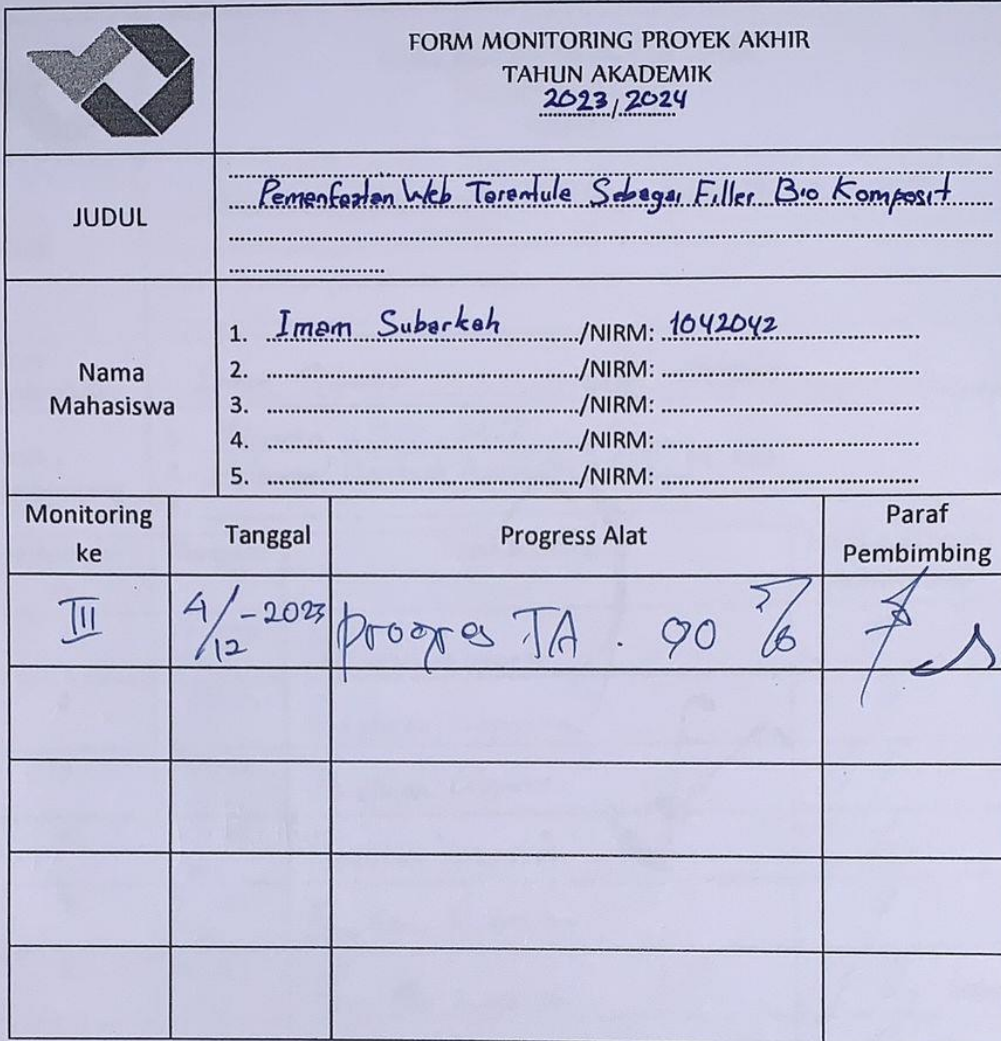 FORM MONITORING PROYEK AKHIR
TAHUN AKADEMIK
2023/2024
JUDUL
Pemanfaatan Web Tarantula Sebagai Filler Bio Komposit
Nama
Mahasiswa
1. Imam Subarkah /NIRM: 1042042
2. /NIRM:
3. /NIRM:
4. /NIRM:
5. /NIRM:
Monitoring
ke
Tanggal
Progress Alat
Paraf
Pembimbing
III
4/12-2023
progres TA. 90 %